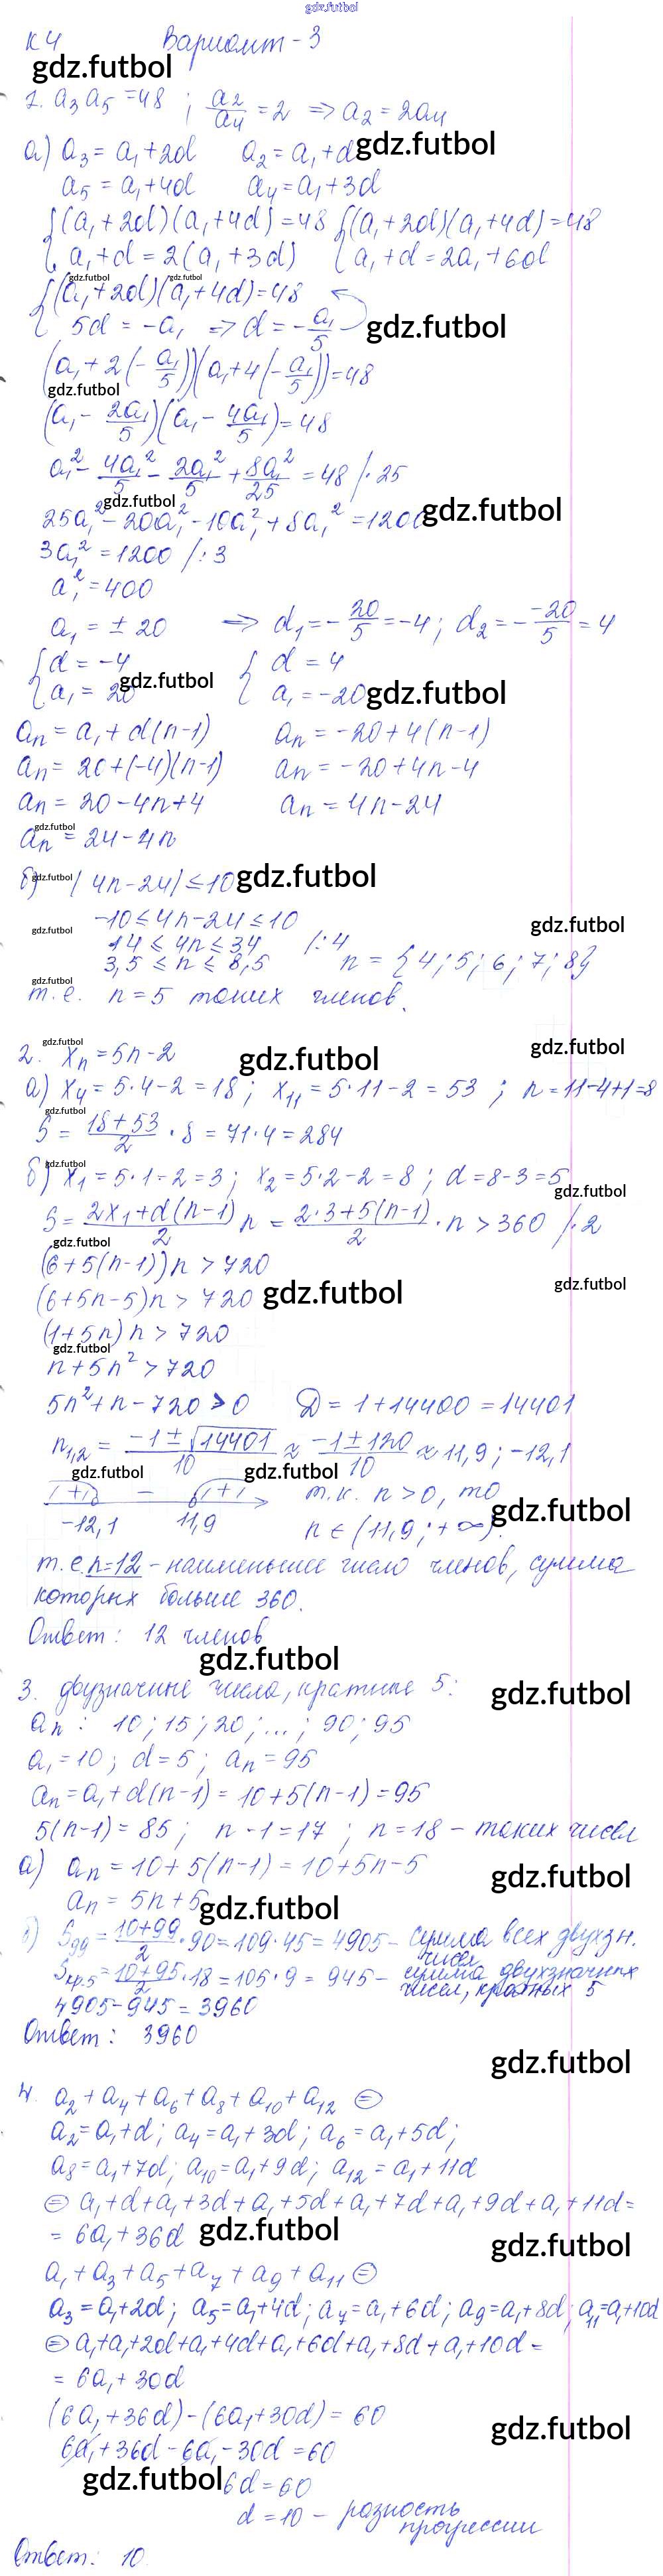 gdz.futbol
К4 Вариант-3
gdz.futbol
1. a₃a₅=48 ; a₂/a₄ = 2 ⇒ a₂ = 2a₄
а) a₃ = a₁+2d a₂ = a₁+d gdz.futbol
a₅ = a₁+4d a₄=a₁+3d
{(a₁+2d)(a₁+4d)=48 {(a₁+2d)(a₁+4d)=48
{a₁+d = 2(a₁+3d) {a₁+d = 2a₁+6d
gdz.futbol gdz.futbol
{(a₁+2d)(a₁+4d)=48
{5d = -a₁ ⇒ d = -a₁/5 gdz.futbol
(a₁+2(-a₁/5))(a₁+4(-a₁/5))=48
gdz.futbol
(a₁ - 2a₁/5)(a₁ - 4a₁/5)=48
a₁² - 4a₁²/5 - 2a₁²/5 + 8a₁²/25 = 48 /·25
gdz.futbol
25a₁²-20a₁²-10a₁²+8a₁²=1200 gdz.futbol
3a₁²=1200 /:3
a₁²=400
a₁ = ±20 ⇒ d₁=-20/5=-4; d₂=--20/5=4
{d = -4 {d = 4
{a₁ = 20 gdz.futbol {a₁ = -20 gdz.futbol
aₙ = a₁+d(n-1) aₙ = -20+4(n-1)
aₙ = 20+(-4)(n-1) aₙ = -20+4n-4
aₙ = 20-4n+4 aₙ = 4n-24
gdz.futbol
aₙ = 24-4n
gdz.futbol
б) |4n-24|≤10 gdz.futbol
-10≤4n-24≤10 gdz.futbol
gdz.futbol
14 ≤ 4n ≤ 34 /:4
3,5 ≤ n ≤ 8,5 n = {4; 5; 6; 7; 8}
gdz.futbol
т.е. n=5 таких членов.
gdz.futbol gdz.futbol
2. xₙ=5n-2 gdz.futbol
а) x₄=5·4-2=18; x₁₁=5·11-2=53 ; n=11-4+1=8
gdz.futbol
S = 18+53/2 · 8 = 71·4=284
gdz.futbol
б) x₁=5·1-2=3; x₂=5·2-2=8; d=8-3=5
gdz.futbol
S = 2x₁+d(n-1)/2 n = 2·3+5(n-1)/2 · n > 360 /·2
gdz.futbol
(6+5(n-1))n > 720
gdz.futbol
(6+5n-5)n > 720 gdz.futbol
(1+5n)n > 720
gdz.futbol
n+5n²>720
5n²+n-720>0 D=1+14400=14401
n₁,₂ = -1±√14401/10 ≈ -1±120/10 ≈ 11,9; -12,1
gdz.futbol gdz.futbol
+ - + т.к. n>0, то
gdz.futbol
-12,1 11,9 n∈(11,9;+∞).
т.е. n=12 - наименьшее число членов, сумма
которых больше 360.
Ответ: 12 членов
gdz.futbol
3. двузначные числа, кратные 5:
gdz.futbol
aₙ: 10; 15; 20; ...; 90; 95
a₁=10; d=5; aₙ=95
aₙ=a₁+d(n-1)=10+5(n-1)=95
5(n-1)=85; n-1=17; n=18 - таких чисел
а) aₙ=10+5(n-1)=10+5n-5
gdz.futbol
aₙ=5n+5 gdz.futbol
б) S₉₉=10+99/2·90=109·45=4905- сумма всех двухзн. чисел
Sкр.5=10+95/2·18=105·9=945- сумма двухзначных чисел, кратных 5
4905-945=3960
Ответ: 3960
gdz.futbol
4. a₂+a₄+a₆+a₈+a₁₀+a₁₂ =
a₂=a₁+d; a₄=a₁+3d; a₆=a₁+5d;
a₈=a₁+7d; a₁₀=a₁+9d; a₁₂=a₁+11d
= a₁+d+a₁+3d+a₁+5d+a₁+7d+a₁+9d+a₁+11d=
= 6a₁+36d gdz.futbol
gdz.futbol
a₁+a₃+a₅+a₇+a₉+a₁₁ =
a₃=a₁+2d; a₅=a₁+4d; a₇=a₁+6d; a₉=a₁+8d; a₁₁=a₁+10d
= a₁+a₁+2d+a₁+4d+a₁+6d+a₁+8d+a₁+10d=
= 6a₁+30d
(6a₁+36d)-(6a₁+30d)=60
gdz.futbol
6a₁+36d-6a₁-30d=60
gdz.futbol 6d=60
d=10 - разность прогрессии
Ответ: 10.